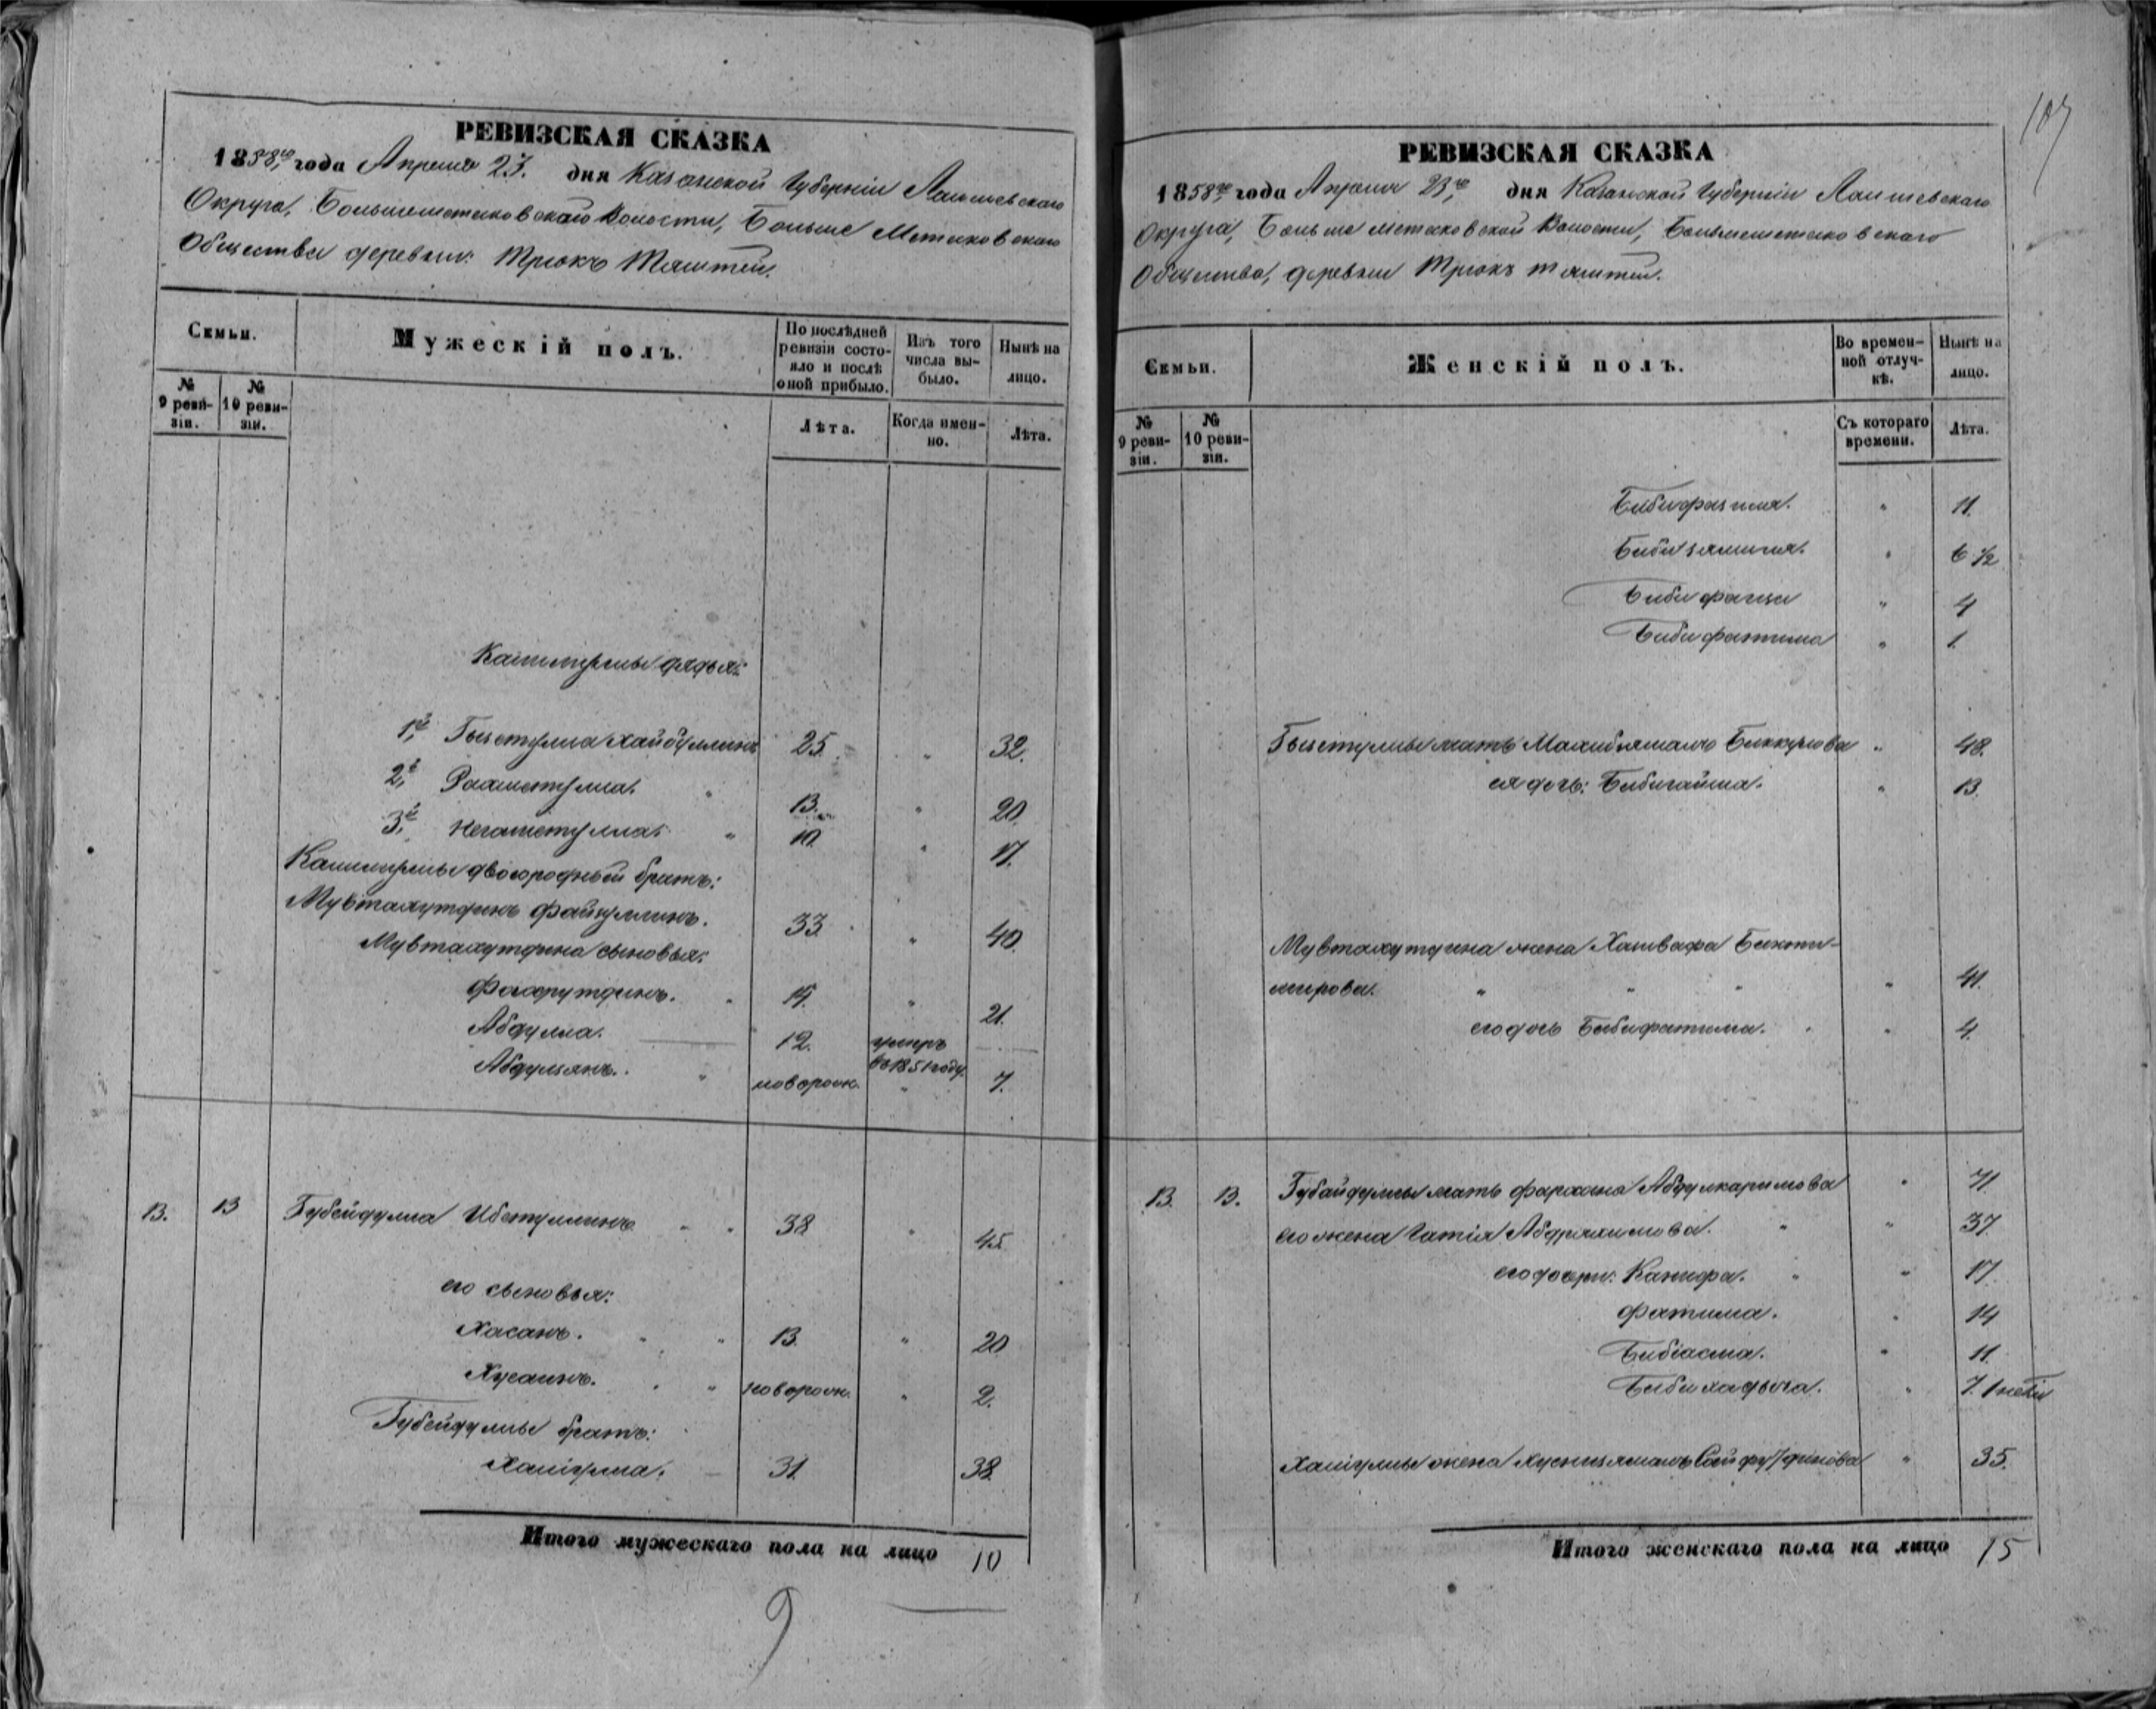 РЕВИЗСКАЯ СКАЗКА
1858го года Апреля 23. дня Казанской Губерніи Лаишевскаго
Округа, Большеметековскаго Волости, Больше Метековскаго
Общества деревни: Трюкъ Тямти.
Семьи.
Мужескій полъ.
По послѣдней ревизіи состояло и послѣ оной прибыло.
Изъ того числа выбыло.
Нынѣ на лицо.
№ 9 ревизіи.
№ 10 ревизіи.
Лѣта.
Когда именно.
Лѣта.
дядья:
1й Хайбуллинъ 25. " 32.
2й Рахметулла. " 13. " 20.
3й Негаметулла: " 10. " 17.
двоюродный братъ:
Мувтахутдинъ Файзуллинъ. 33. " 40.
Мувтахутдина сыновья:
Фахрутдинъ. " 14. " 21.
Абдулла. 12. умеръ въ 1851 году.
Абдулзянъ. " новорож. " 7.
13. 13 Губейдулла Ибетуллинъ " " 38 " 45.
его сыновья:
Хасанъ. " " 13. " 20
Хусаинъ. " " новорож. " 2.
Губейдуллы братъ:
31. 38.
Итого мужескаго пола на лицо 10
9
107
РЕВИЗСКАЯ СКАЗКА
1858го года Апреля 23го, дня Казанской Губерніи Лаишевскаго
Округа, Больше метековской Волости, Большеметековскаго
Общества, деревни Трюкъ тямти.
Семьи.
Женскій полъ.
Во временной отлучкѣ.
Нынѣ на лицо.
№ 9 ревизіи.
№ 10 ревизіи.
Съ котораго времени.
Лѣта.
" 11.
" 6 1/2
" 4
Бибифатима " 1.
мать " 48.
ея дочь: Бибигайша. " 13.
Мувтахутдина жена Хашвафа Бикти-
мирова. " " " " 41.
его дочь Бибифатима. " " 4.
13. 13. Губайдуллы мать Фархана Абдулкаримова " 71.
его жена Гатія Абдряхимова. " " 37
его дочери: Канифа. " " 17.
Фатима. " 14
Бибіасма. " 11.
Бибихадыча. " 7. 1 неділ
жена Хуснизямалъ Сайфутдинова " 35.
Итого женскаго пола на лицо 15